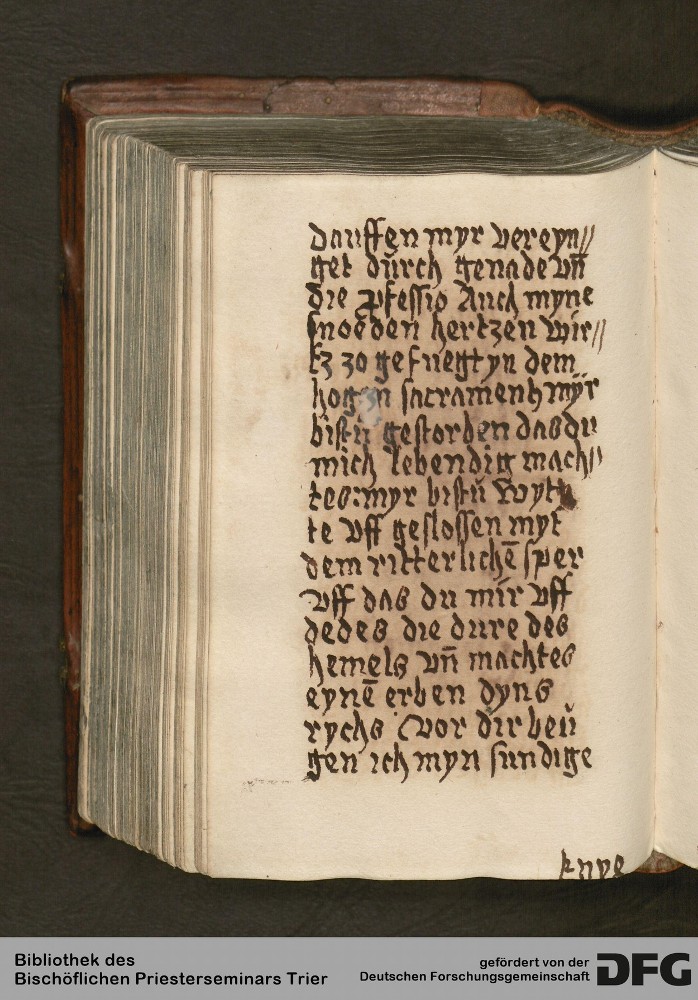 dauffen myr vereyn//
get durch genade vn̄
die ꝓfessio Auch myne
snoeden hertzen wir//
tz zo gefuegt yn dem
hogen sacrament mÿr
bistu gestorben das du
mich lebendig mach//
tes: myr bistu wytt
te vff geslossen myt
dem ritterlichē sper
vff das du mir vff
dedes die dure des
hemels vn̄ machtes
eynē erben dyns
rychs Vor dir beu
gen ich myn sundige
knye
Bibliothek des
Bischöflichen Priesterseminars Trier
gefördert von der
Deutschen Forschungsgemeinschaft
DFG